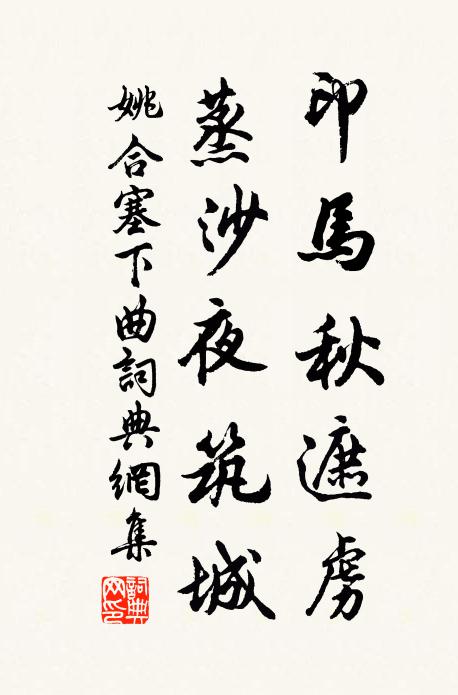 印馬秋遮虜
蒸沙夜筑城
姚合塞下曲詞典網集
詞典網印